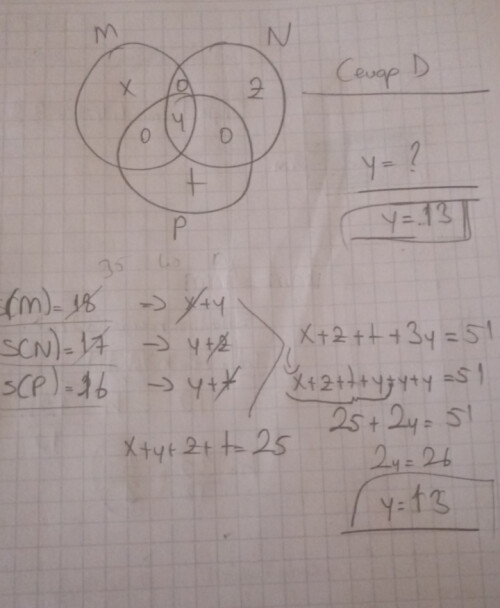 M
N
x
0
z
y
0
0
t
P
Cevap D
y = ?
y = 13
s(M) = 18 → x+y
s(N) = 17 → y+z
s(P) = 16 → y+t
x+y+z+t = 25
x+z+t+3y = 51
x+z+t+y+y+y = 51
25+2y = 51
2y = 26
y = 13